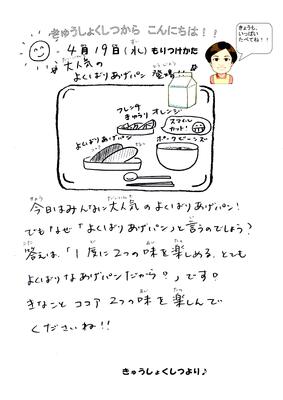 きゅうしょくしつから こんにちは！！
きょうも、
いっぱい
たべてね！！
4月19日(水)もりつけかた
大人気の
よくばりあげパン
フレンチ
きゅうり
オレンジ
スマイル
カット！
よくばりあげパン
ポークビーンズ
今日はみんなに大人気のよくばりあげパン！
でもなぜ「よくばりあげパン」と言うのでしょう？
答えは、「1度に2つの味を楽しめる、とても
よくばりなあげパンだから。」です。
きなことココア2つの味を楽しんで
くださいね！！
きゅうしょくしつより♪